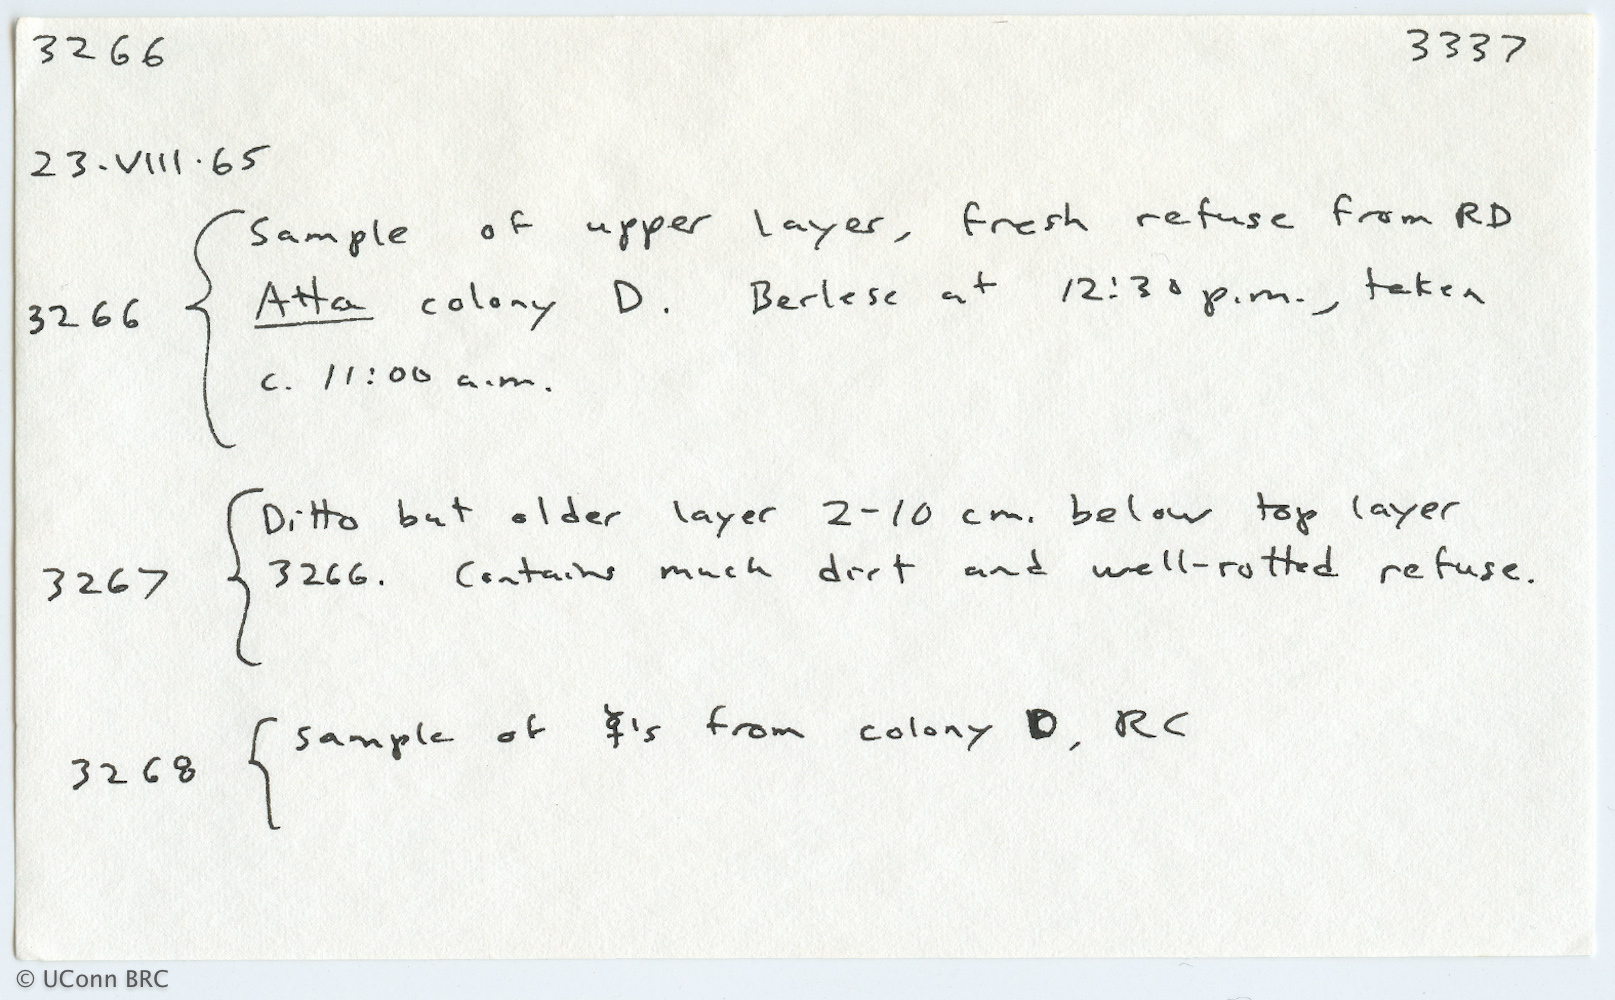 3266 3337
23.VIII.65
Sample of upper layer, fresh refuse from RD
3266 { Atta colony D. Berlese at 12:30 p.m., taken
c. 11:00 a.m.
Ditto but older layer 2-10 cm. below top layer
3267 { 3266. Contains much dirt and well-rotted refuse.
3268 { Sample of ☿'s from colony D, RC
© UConn BRC